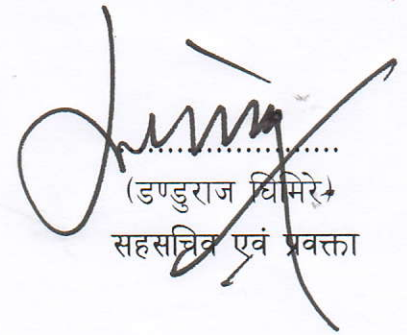 ....................
(डण्डुराज घिमिरे)
सहसचिव एवं प्रवक्ता